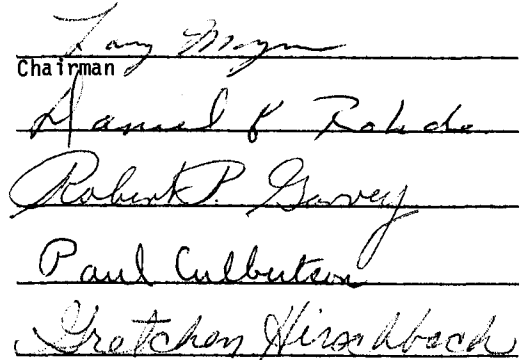 Chairman
Daniel
Robert P. Garvey
Paul Culbertson
Gretchen Hirschbach